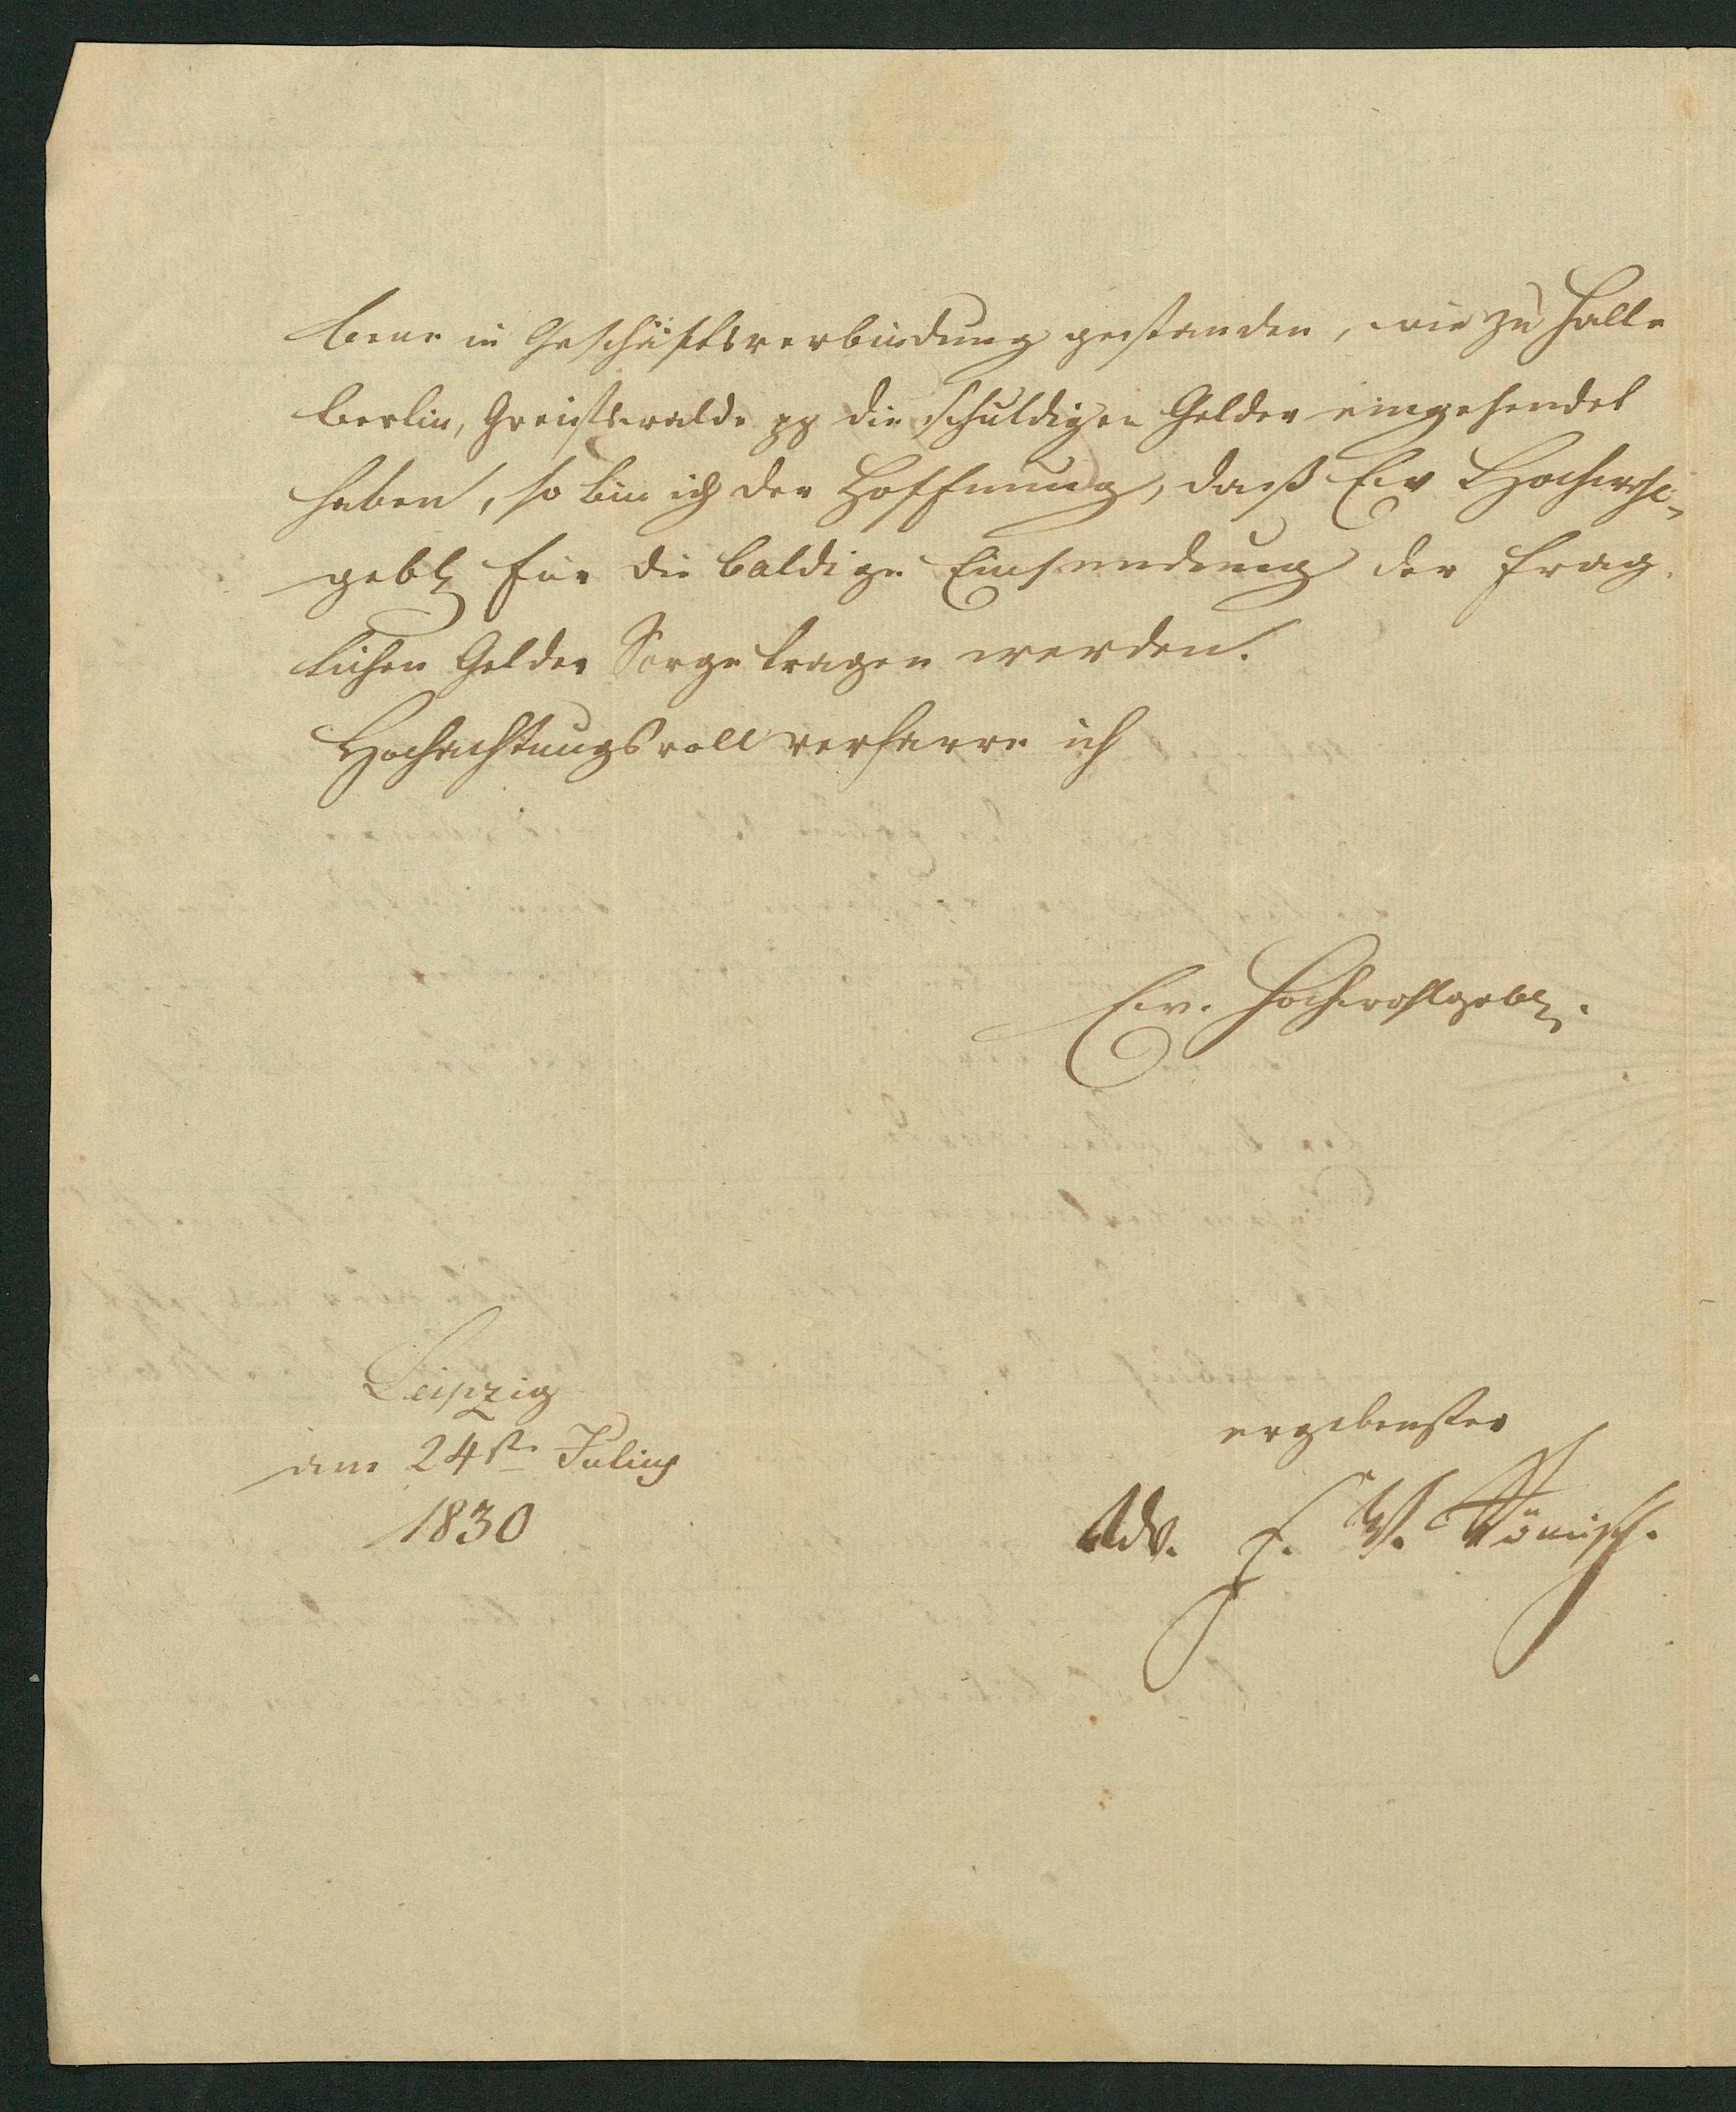 bene in Geschäftsverbindung gestanden, wie zu Halle
Berlin, Greifswalde pp die schuldigen Gelder eingesendet
haben, so bin ich der Hoffnung, daß Ew Hochwohl-
gebl für die baldige Einsendung der frag-
lichen Gelder Sorge tragen werden.
Hochachtungsvoll verharre ich
Ew. Hochwohlgebl.
Leipzig
am 24st Julius
1830
ergebenster
Adv. F. W. Römisch.